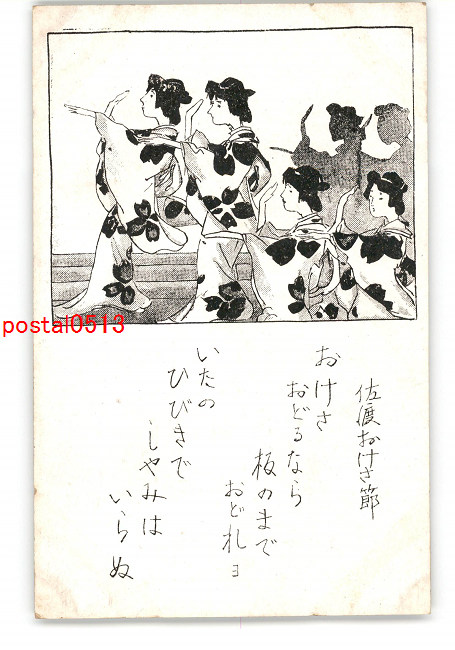 佐渡おけさ節
おけさ
おどるなら
板のまで
おどれヨ
いたの
ひびきで
しやみは
いらぬ
postal0513